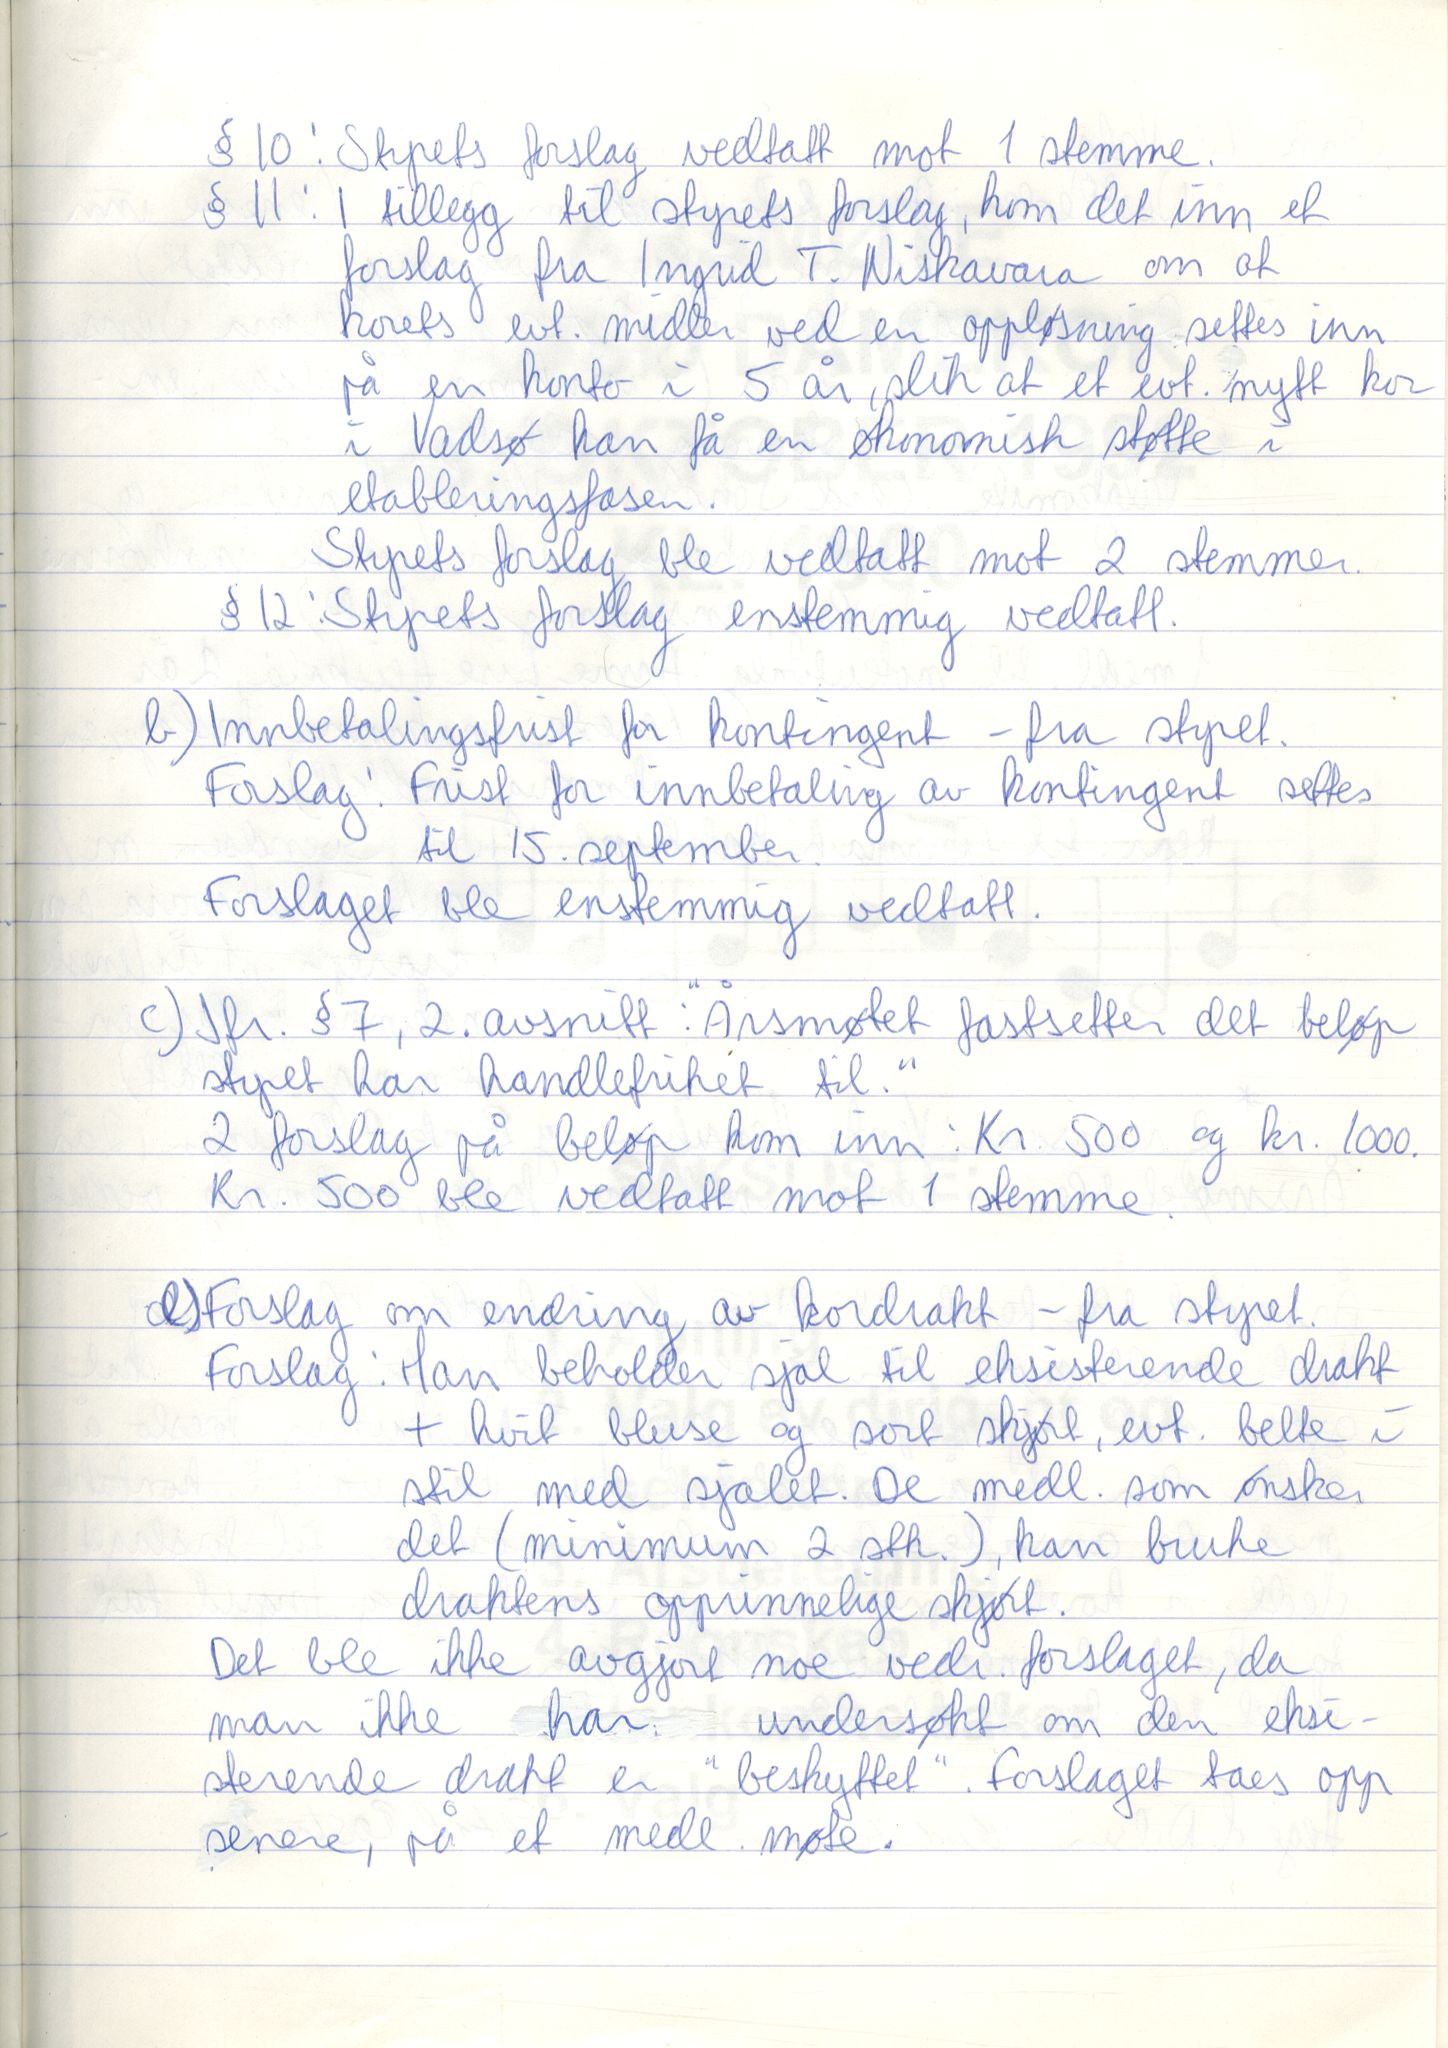 § 10: Styrets forslag vedtatt mot 1 stemme.
§ 11: I tillegg til styrets forslag, kom det inn et
forslag fra Ingrid T. Niskavara om at
korets evt. midler ved en oppløsning settes inn
på en konto i 5 år, slik at et evt. nytt kor
i Vadsø kan få en økonomisk støtte i
etableringsfasen.
Styrets forslag ble vedtatt mot 2 stemmer.
§ 12: Styrets forslag enstemmig vedtatt.
b) Innbetalingsfrist for kontingent - fra styret.
Forslag: Frist for innbetaling av kontingent settes
til 15. september.
Forslaget ble enstemmig vedtatt.
c) Jfr. § 7, 2. avsnitt: "Årsmøtet fastsetter det beløp
styret har handlefrihet til."
2 forslag på beløp kom inn: Kr. 500 og kr. 1000.
Kr. 500 ble vedtatt mot 1 stemme.
d) Forslag om endring av kordrakt - fra styret.
Forslag: Man beholder sjal til eksisterende drakt
+ hvit bluse og sort skjørt, evt. belte i
stil med sjalet. De medl. som ønsker
det (minimum 2 stk.), kan bruke
draktens opprinnelige skjørt.
Det ble ikke avgjort noe vedr. forslaget, da
man ikke har undersøkt om den eksi-
sterende drakt er "beskyttet". Forslaget taes opp
senere, på et medl. møte.